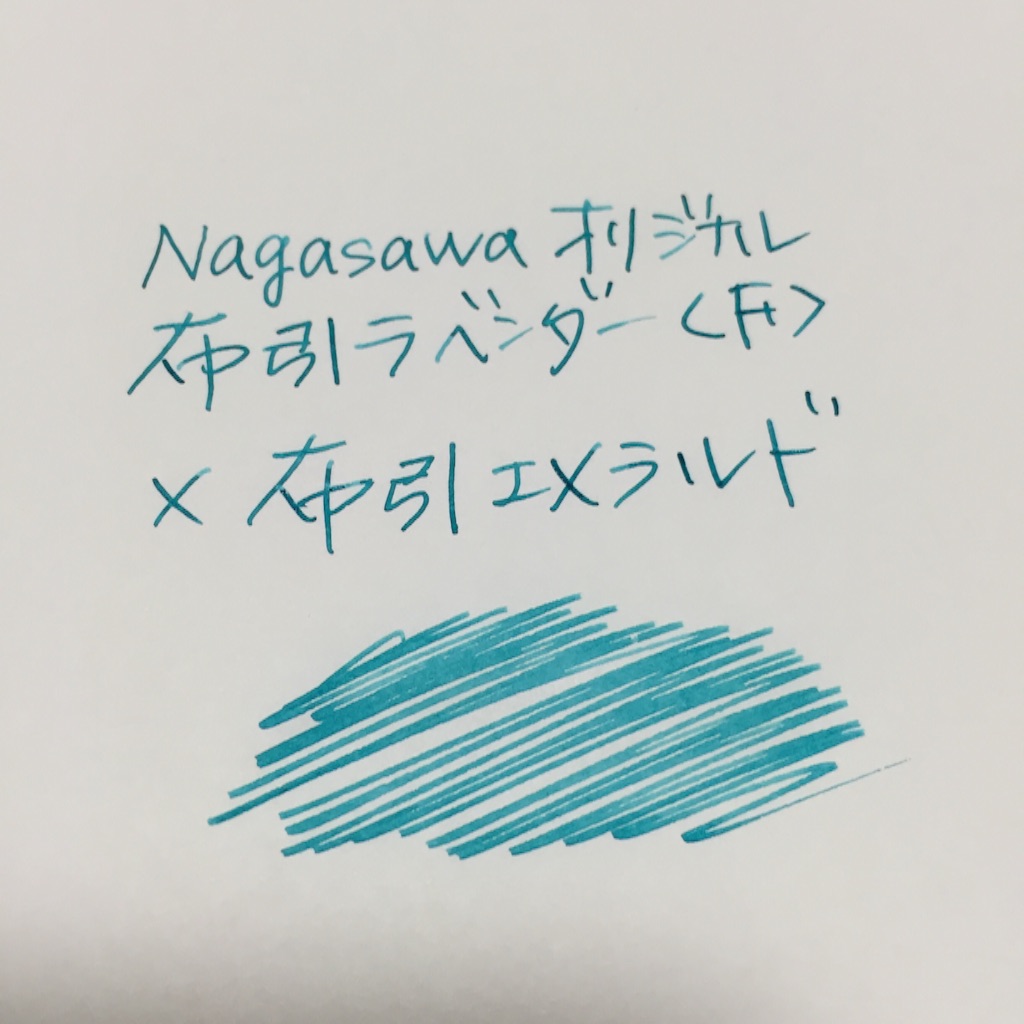 Nagasawa オリジナル
布引ラベンダー <Ft>
× 布引エメラルド